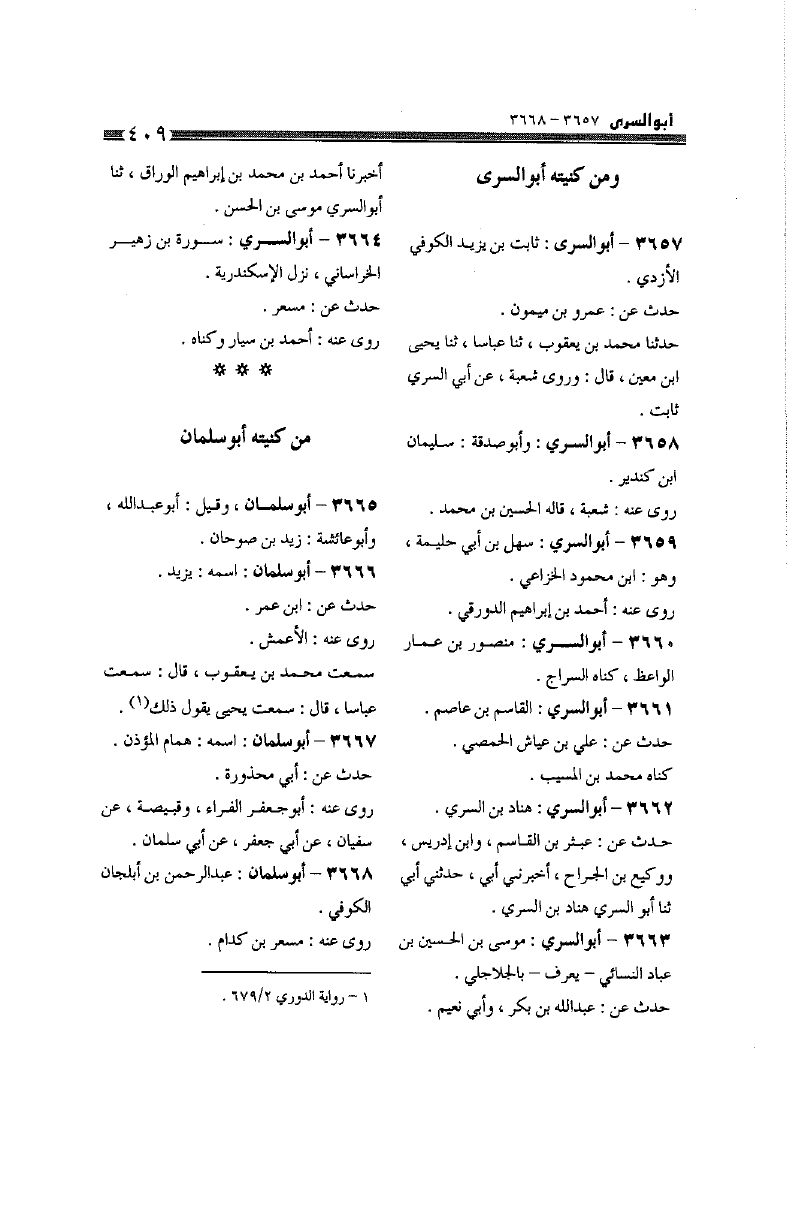 أبوالسرى ٣٦٥٧ – ٣٦٦٨
٤٠٩
ومن كنيته أبوالسرى
٣٦٥٧ – أبوالسرى : ثابت بن يزيد الكوفي
الأزدي .
حدث عن : عمرو بن ميمون .
حدثنا محمد بن يعقوب ، ثنا عباسا ، ثنا يحيى
ابن معين ، قال : وروى شعبة ، عن أبي السري
ثابت .
٣٦٥٨ – أبوالسري : وأبوصدقة : سليمان
ابن كندير .
روى عنه : شعبة ، قاله الحسين بن محمد .
٣٦٥٩ – أبوالسري : سهل بن أبي حليمة ،
وهو : ابن محمود الخزاعي .
روى عنه : أحمد بن إبراهيم الدورقي .
٣٦٦٠ – أبوالسري : منصور بن عمار
الواعظ ، كناه السراج .
٣٦٦١ – أبوالسري : القاسم بن عاصم .
حدث عن : علي بن عياش الحمصي .
كناه محمد بن المسيب .
٣٦٦٢ – أبوالسري : هناد بن السري .
حدث عن : عبثر بن القاسم ، وابن إدريس ،
ووكيع بن الجراح ، أخبرني أبي ، حدثني أبي
ثنا أبو السري هناد بن السري .
٣٦٦٣ – أبوالسري : موسى بن الحسين بن
عباد النسائي – يعرف – بالجلاجلي .
حدث عن : عبدالله بن بكر ، وأبي نعيم .
أخبرنا أحمد بن محمد بن إبراهيم الوراق ، ثنا
أبوالسري موسى بن الحسن .
٣٦٦٤ – أبوالسري : سورة بن زهير
الخراساني ، نزل الإسكندرية .
حدث عن : مسعر .
روى عنه : أحمد بن سيار وكناه .
* * *
من كنيته أبوسلمان
٣٦٦٥ – أبوسلمان ، وقيل : أبوعبدالله ،
وأبوعائشة : زيد بن صوحان .
٣٦٦٦ – أبوسلمان : اسمه : يزيد .
حدث عن : ابن عمر .
روى عنه : الأعمش .
سمعت محمد بن يعقوب ، قال : سمعت
عباسا ، قال : سمعت يحيى يقول ذلك(١) .
٣٦٦٧ – أبوسلمان : اسمه : همام المؤذن .
حدث عن : أبي محذورة .
روى عنه : أبوجعفر الفراء ، وقبيصة ، عن
سفيان ، عن أبي جعفر ، عن أبي سلمان .
٣٦٦٨ – أبوسلمان : عبدالرحمن بن أبلجان
الكوفي .
روى عنه : مسعر بن كدام .
١ – رواية الدوري ٦٧٩/٢ .